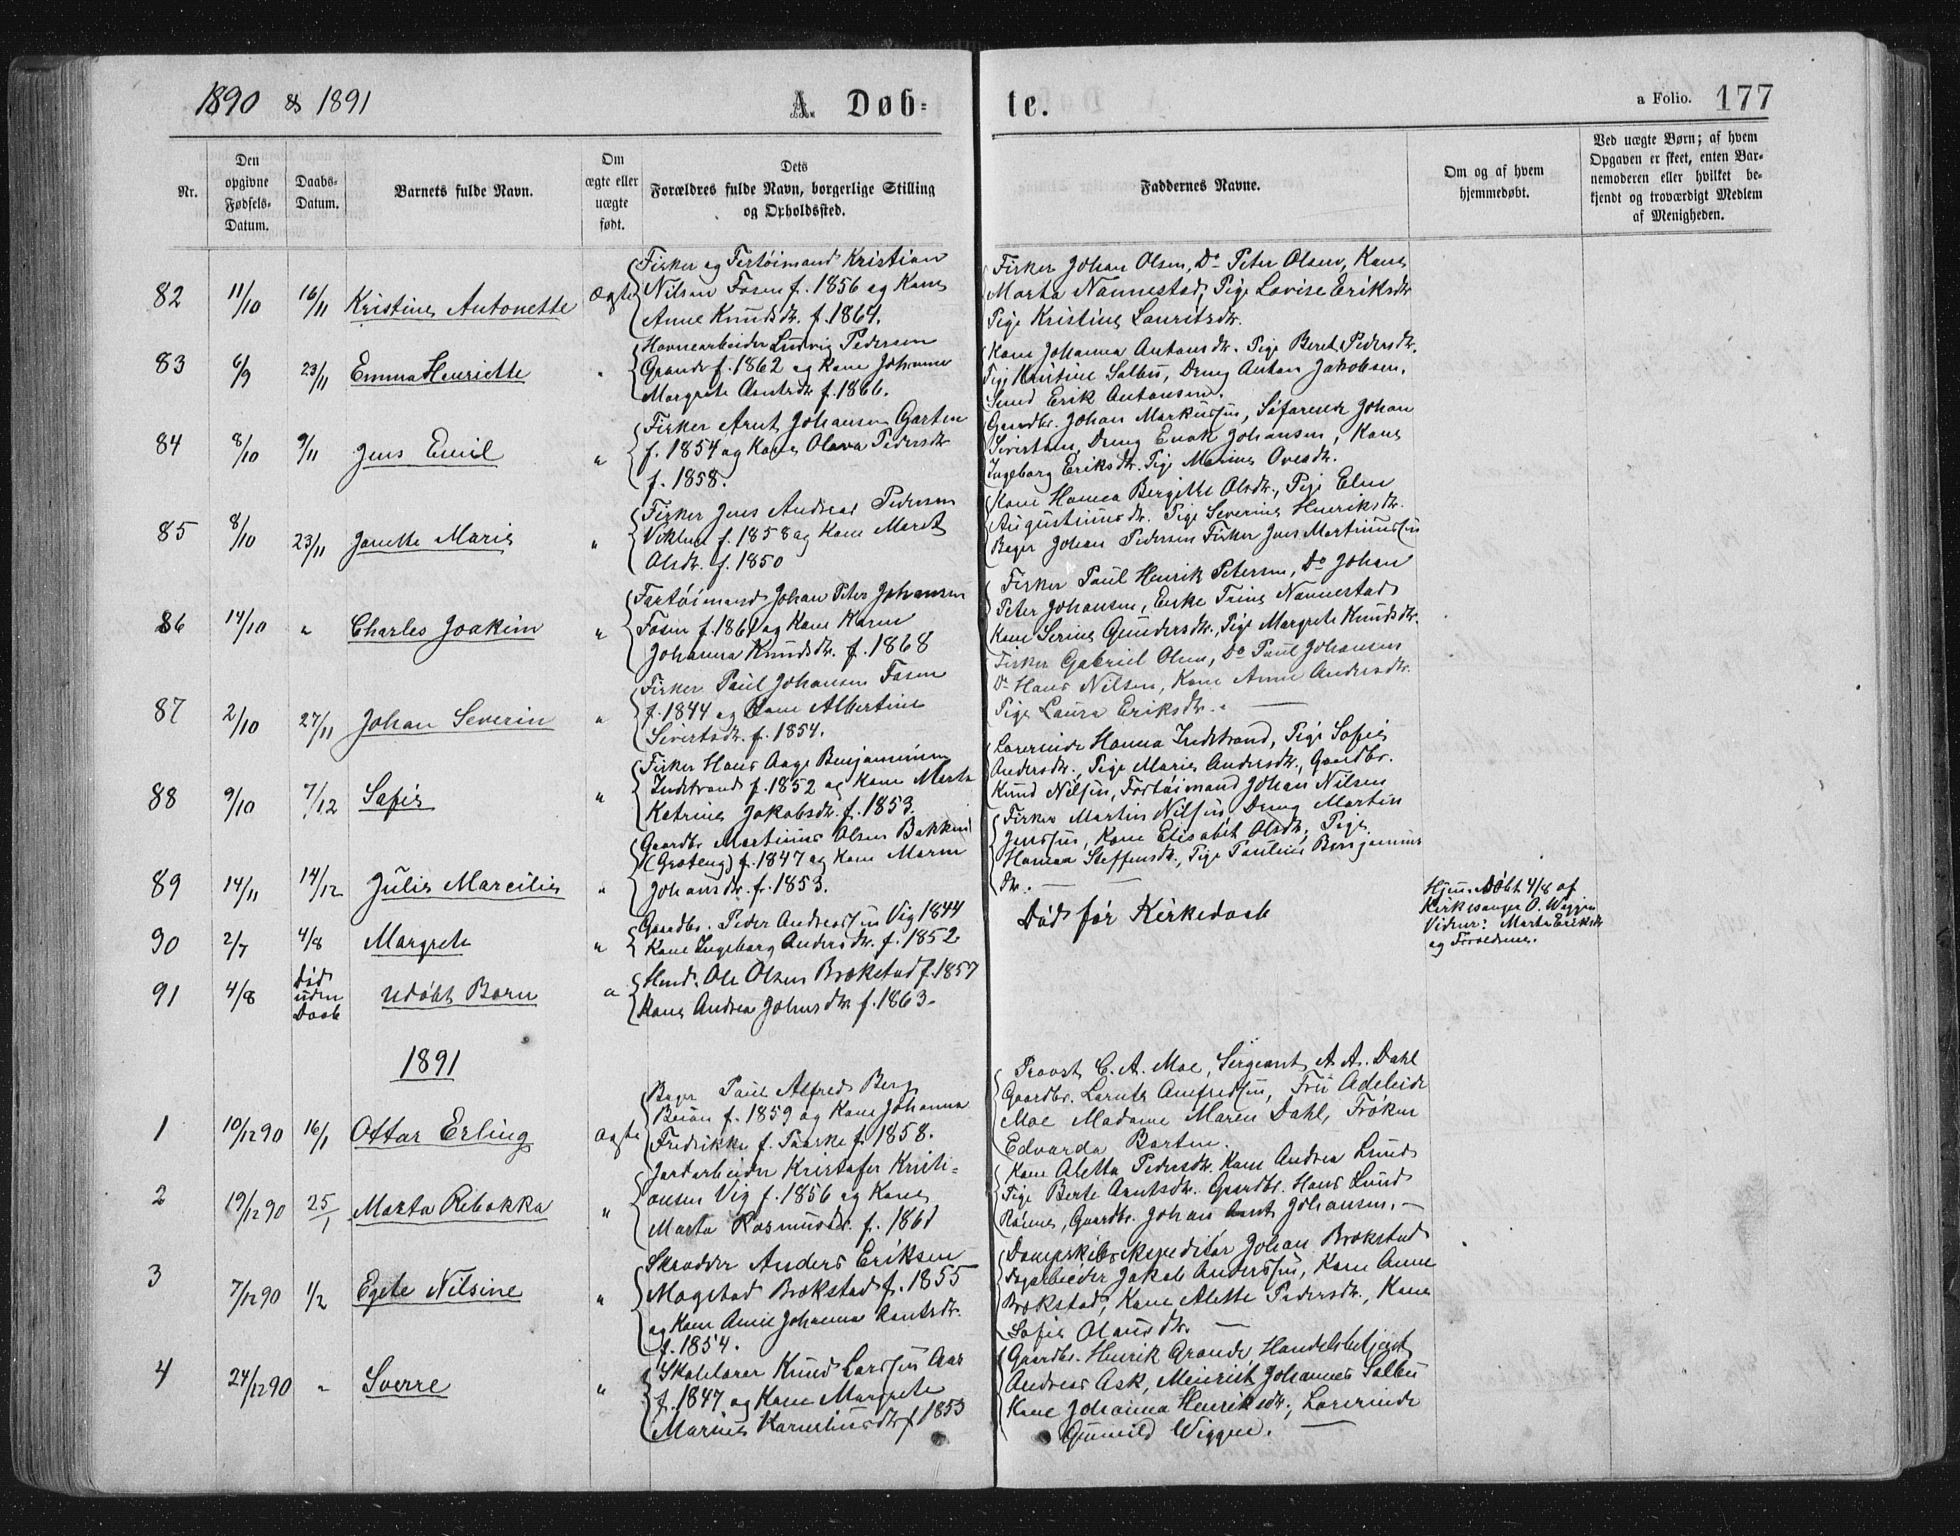 1890 & 1891
A. Døb=
te.
a Folio. 177
Nr.
Den opgivne Fødsels-Datum.
Daabs-Datum.
Barnets fulde Navn.
Om ægte eller uægte født.
Dets Forældres fulde Navn, borgerlige Stilling og Opholdssted.
Faddernes Navne.
Om og af hvem hjemmedøbt.
Ved uægte Børn; af hvem Opgaven er skeet, enten Barnemoderen eller hvilket bekjendt og troværdigt Medlem af Menigheden.
82 11/10 16/11 Kristine Antonette Ægte
Fisker og Fartøimand Kristian
Nilsen Fosen f. 1856 og Kone
Anne Knudsdtr. f. 1864.
Fisker Johan Olsen, Do Peter Olsen, Kone
Marta Nannestad, Pige Lovise Eriksdtr
Pige Kristine Lauritsdtr.
83 6/9 23/11 Emma Henriette "
Havnearbeider Ludvig Pedersen
Grande f. 1862 og Kone Johanna
Margrete Arntsdtr f. 1866.
Kone Johanna Antonsdtr. Pige Beret Pedersdtr.
Pige Kristine Solbu, Dreng Anton Jakobsen,
Smed Erik Antonsen.
84 8/10 9/11 Jens Emil "
Fisker Arnt Johansen Garten
f. 1854 og Kone Olava Pedersdtr
f. 1858.
Gaardbr. Johan Markussen, Søfarende Johan
Sivertsen, Dreng Enok Johansen, Kone
Ingeborg Eriksdtr. Pige Marine Ovesdtr.
85 8/10 23/11 Janetta Marie "
Fisker Jens Andreas Pedersen
Viklem f. 1858 og Kone Maret
Olsdtr. f. 1850
Kone Hanna Bergitte Olsdtr., Pige Elen
Augustinusdtr. Pige Severine Henriksdtr.
Bager Johan Pedersen Fisker Jens Martinussen
86 14/10 " Charles Joakim "
Fartøimand Johan Peter Johansen
Fosen f. 1861 og Kone Karen
Johanna Knudsdtr. f. 1868
Fisker Paul Henrik Petersen, Do Johan
Peter Johansen, Enke Trine Nannestad
Kone Serine Gundersdtr., Pige Margrete Knudsdtr.
87 2/10 27/11 Johan Severin "
Fisker Paul Johansen Fosen
f. 1844 og Kone Albertine
Sivertsdtr. f. 1854.
Fisker Gabriel Olsen, Do Paul Johansen
Do Hans Nilsen, Kone Anne Andersdtr.
Pige Laura Eriksdtr. —
88 9/10 7/12 Sofie "
Fisker Hans Aage Benjaminsen
Indstrand f. 1852 og Kone Marta
Katrine Jakobsdtr. f. 1853.
Lærerinde Hanna Indstrand, Pige Sofie
Andersdtr., Pige Marie Andersdtr., Gaardbr.
Knud Nilsen, Fartøimand Johan Nilsen
89 14/11 14/12 Julie Marcilie "
Gaardbr Martinus Olsen Bakken
(Grøteng) f. 1847 og Kone Maren
Johansdtr. f. 1853.
Fisker Martin Nilsen, Dreng Martin
Jenssen, Kone Elisabet Olsdtr, Pige
Hanna Steffensdtr., Pige Pauline Benjamins
dtr. —
90 2/7 4/8 Margrete "
Gaardbr. Peder Andreassen Vig 1844
Kone Ingeborg Andersdtr. f. 1852
Død før Kirkedaab
Hjem. døbt 4/8 af
Kirkesanger O. Wiggen
Vidner: Marta Eriksdtr
og Forældrene.
91 4/8 Død
uden
Daab
Udøbt Barn "
Hmd. Ole Olsen Brækstad f. 1857
Kone Andrea Johnsdtr f. 1863.
1891
1 10/12 90 16/1 Ottar Erling Ægte
Bager Paul Alfred Berg
Beian f. 1859 og Kone Johanna
Fredrikke f. Paaske f. 1858.
Provst C. A. Moe, Sergeant A. A. Dahl
Gaardbr. Lorents Amfredsen, Frü Adeleide
Moe Madame Maren Dahl, Frøken
Edvarda Barten.
2 19/12 90 25/1 Marta Rebekka "
Jordarbeider Kristofer Kristi=
ansen Vig f. 1856 og Kone
Marta Rasmusdtr. f. 1861
Kone Aletta Pedersdtr. Kone Andrea Lund
Pige Berte Arntsdtr. Gaardbr. Hans Lund
Rønne, Gaardbr. Johan Arnt Johansen. —
3 7/12 90 1/2 Egete Nilsine "
Skrædder Anders Eriksen
Mogstad Brækstad f. 1855
og Kone Anne Johanna Arntsdtr.
f. 1854.
Dampskibsexpeditør Johan Brækstad
Dagarbeider Jakob Anderssen, Kone Anne
Brækstad, Kone Alette Pedersdtr., Kone
Sofie Olausdtr. —
4 24/12 90 " Sverre "
Skolelærer Knud Larssen Aar
f. 1847 og Kone Margrete
Marine Korneliusdtr f 1853
Gaardbr. Henrik Grande Handelsbetjent
Andreas Ask, Meierist Johannes Solbu
Kone Johanna Henriksdtr., Lærerinde
Gunnild Wiggen. —